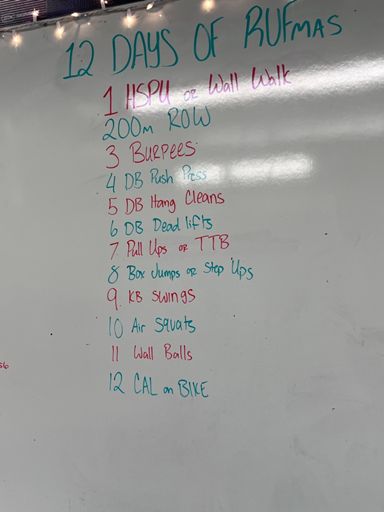 12 DAYS OF RUFMAS
1 HSPU or Wall Walk
200m ROW
3 BURPEES
4 DB Push Press
5 DB Hang Cleans
6 DB Dead lifts
7 Pull Ups or TTB
8 Box Jumps or Step Ups
9 KB SWINGS
10 Air Squats
11 Wall Balls
12 CAL on BIKE